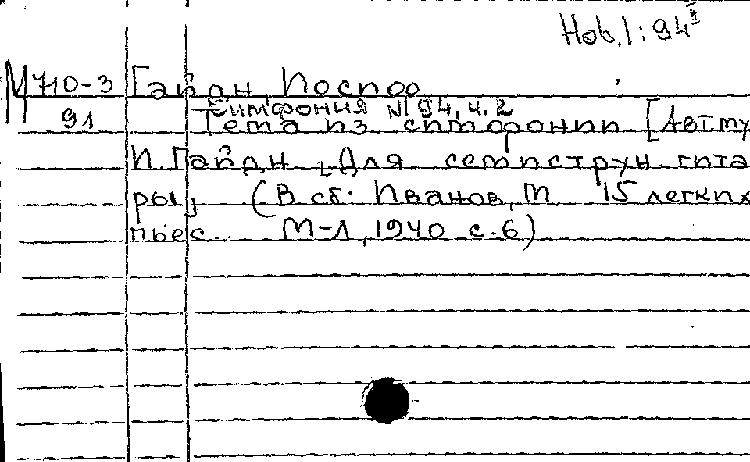 Hob. I: 94 II
М 710-3 Гайдн, Иосиф
Симфония №94, ч. 2
91 Тема из симфонии [Авт. му
И. Гайдн, Для семиструн. гита
ры] (В сб: Иванов, М 15 легких
пьес. М-Л, 1940 с. 6)